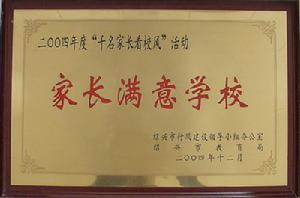 二〇〇四年度“千名家长看校风”活动
家长满意学校
绍兴市行风建设领导小组办公室
绍兴市教育局
二〇〇四年十二月